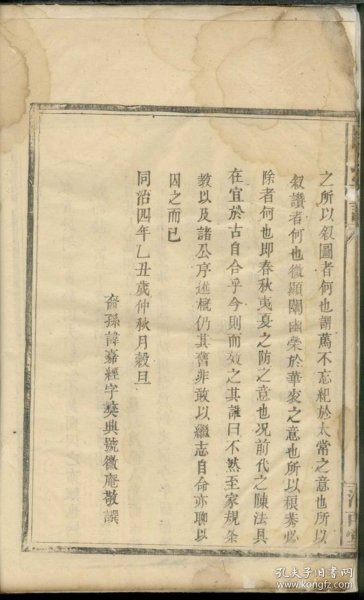 之所以叙圖者何也謝萬不忘紀於太常之意也所以
叙讚者何也微顯闡幽榮於華衮之意也所以稂莠必
除者何也即春秋夷夏之防之意也况前代之陳法具
在宜於古自合乎今則而效之其誰曰不然至家規条
教以及諸公序述概仍其舊非敢以繼志自命亦聊以
因之而已
同治四年乙丑歲仲秋月穀旦
裔孫諱嘉經字奠典號徽庵敬譔
孔夫子旧书网
www.kongfz.com